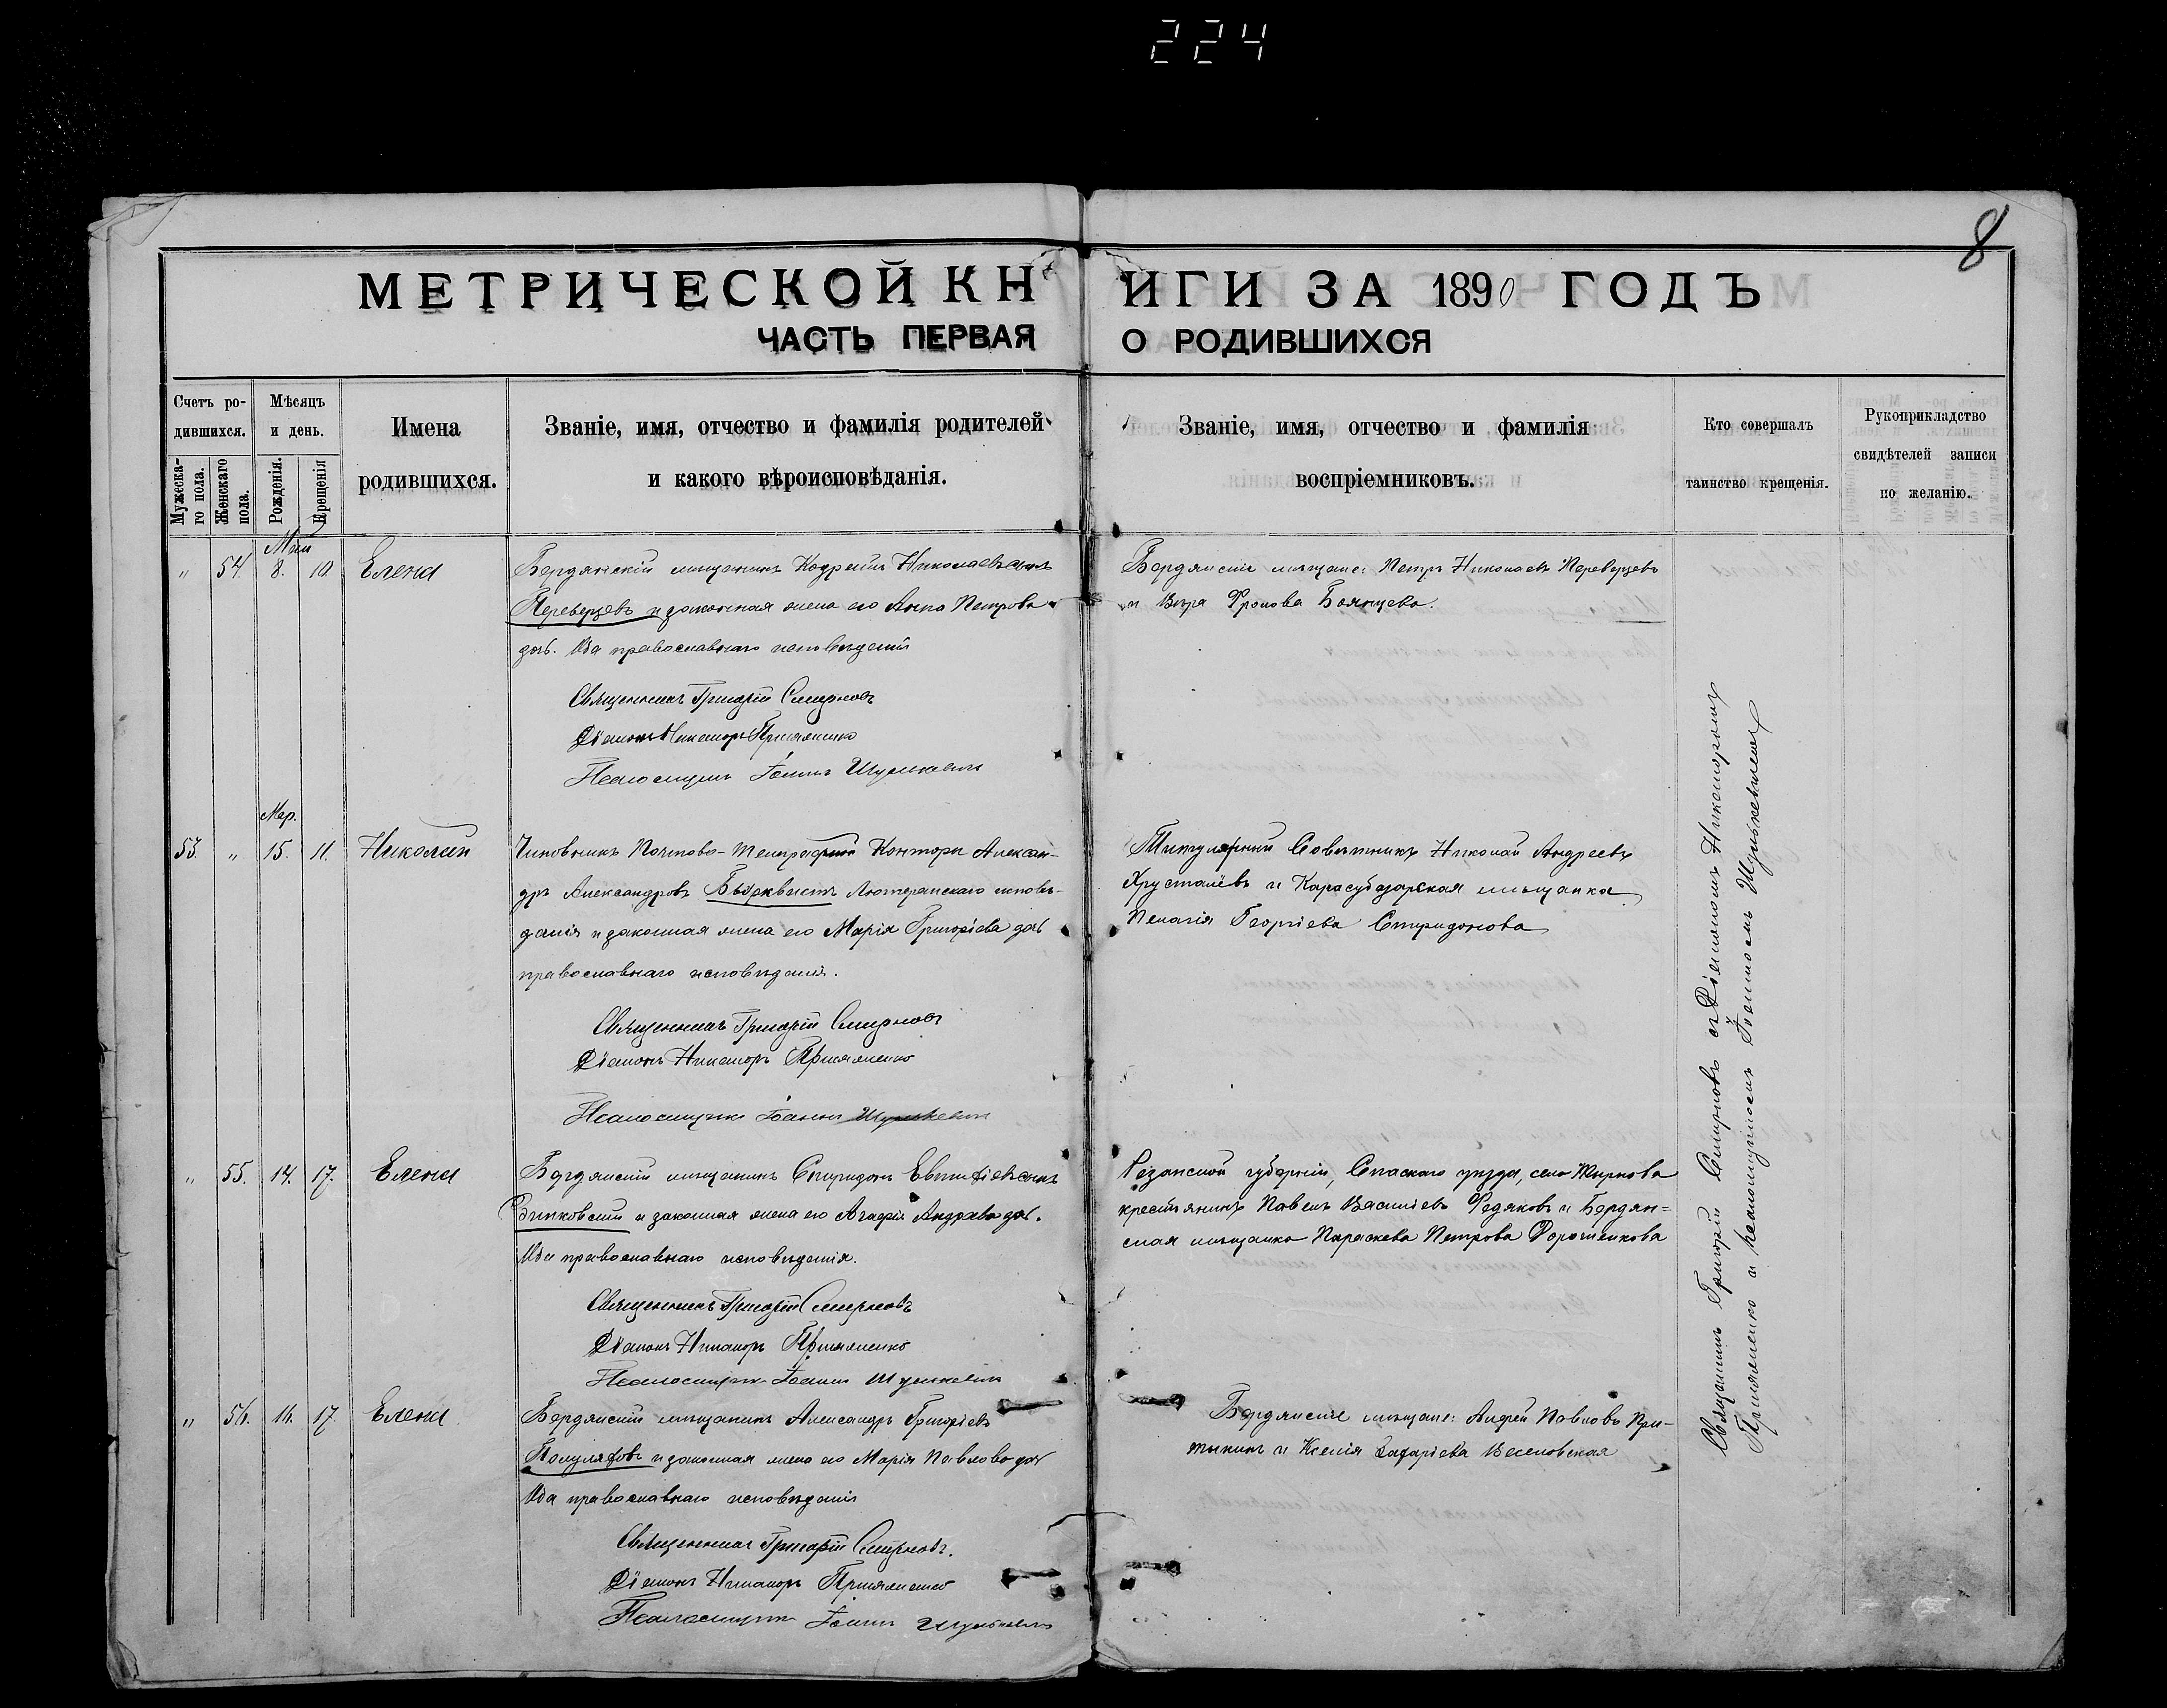 224
8
МЕТРИЧЕСКОЙ КНИГИ ЗА 1890 ГОДЪ
ЧАСТЬ ПЕРВАЯ О РОДИВШИХСЯ
Счетъ ро-
дившихся.
Мужеска-
го пола.
Женскаго
пола.
Мѣсяцъ
и день.
Рожденія.
Крещенія
Имена
родившихся.
Званіе, имя, отчество и фамилія родителей
и какого вѣроисповѣданія.
Званіе, имя, отчество и фамилія
воспріемниковъ.
Кто совершалъ
таинство крещенія.
Рукоприкладство
свидѣтелей записи
по желанію.
Май
" 54. 8. 10. Елена
Бердянскій мѣщанинъ Николаевъ сынъ
Переверзевъ и законная жена его Анна Петрова
дочь. Оба православнаго исповѣданія
Священникъ Григорій Смирновъ
Діаконъ Никаноръ
Псаломщикъ Іоаннъ Шулькевичъ
Бердянскіе мѣщане: Петръ Николаевъ Переверзевъ
и Вѣра Фролова
Мар.
53. " 15. 11. Николай
Чиновникъ Почтово-Телеграфной Конторы Алексан-
дръ Александровъ Лютеранскаго исповѣ-
данія и законная жена его Марія Григоріева дочь
православнаго исповѣданія.
Священникъ Григорій Смирновъ
Діаконъ Никаноръ
Псаломщикъ Іоаннъ Шулькевичъ
Титулярный Совѣтникъ Николай Андреевъ
Хрусталёвъ и Карасубазарская мѣщанка
Пелагія Георгіева Спиридонова
" 55. 14. 17. Елена
Бердянскій мѣщанинъ Спиридонъ Евтихіевъ сынъ
и законная жена его Агафія Андреева дочь.
Оба православнаго исповѣданія.
Священникъ Григорій Смирновъ
Діаконъ Никаноръ
Псаломщикъ Іоаннъ Шулькевичъ
Рязанской губерніи, Спаскаго уѣзда, село
крестьянинъ Павелъ Васильевъ Федяковъ и Бердян=
ская мѣщанка Параскева Петрова
" 56. 16. 17. Елена
Бердянскій мѣщанинъ Александръ Григорьевъ
и законная жена его Марія Павлова дочь
Оба православнаго исповѣданія
Священникъ Григорій Смирновъ.
Діаконъ Никаноръ
Псаломщикъ Іоаннъ Шулькевичъ
Бердянскіе мѣщане: Андрей Павловъ
и Ксенія Захаріева Веселовская
Священникъ Григорій Смирновъ съ Діакономъ Никаноромъ
и псаломщикомъ Іоанномъ Шулькевичемъ